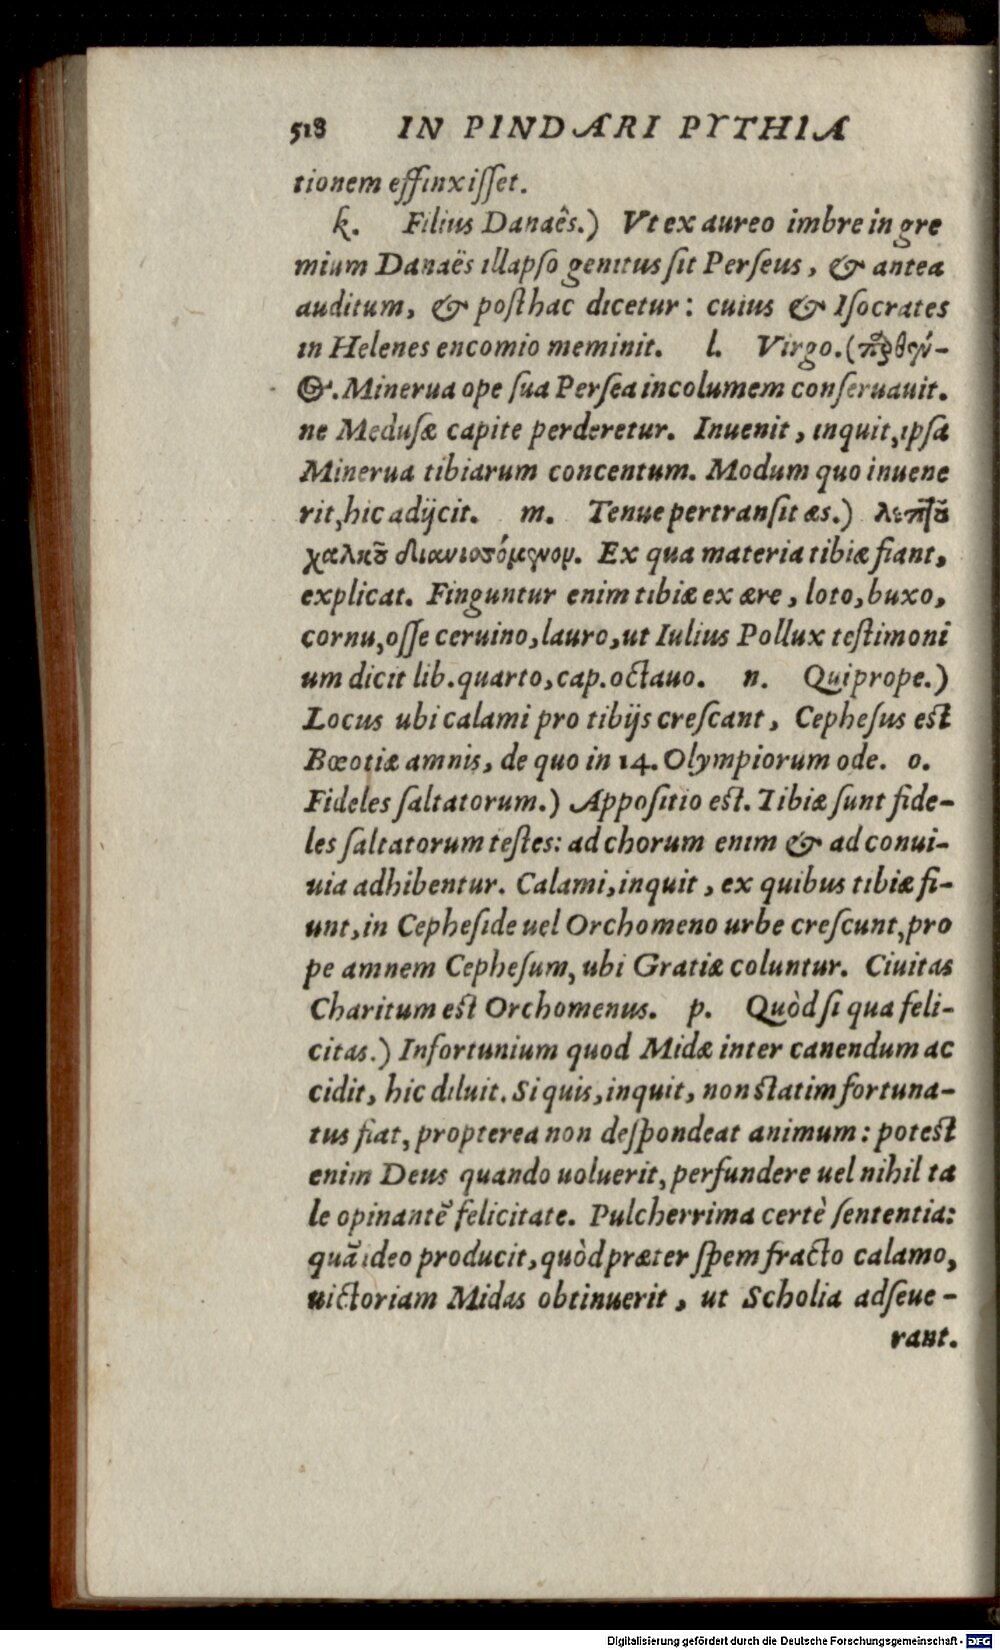 518 IN PINDARI PYTHIA
tionem effinxiſſet.
k. Filius Danaês.) Vt ex aureo imbre in gre
mium Danaës illapſo genitus ſit Perſeus, & antea
auditum, & poſthac dicetur: cuius & Iſocrates
in Helenes encomio meminit. l. Virgo.(παρθέν-
ος. Minerua ope ſua Perſea incolumem conſeruauit.
ne Meduſæ capite perderetur. Inuenit, inquit, ipſa
Minerua tibiarum concentum. Modum quo inuene
rit, hic adijcit. m. Tenue pertranſit æs.) λεπτοῦ
χαλκοῦ διανισσόμενον. Ex qua materia tibiæ fiant,
explicat. Finguntur enim tibiæ ex ære, loto, buxo,
cornu, oſſe ceruino, lauro, ut Iulius Pollux teſtimoni
um dicit lib. quarto, cap. octauo. n. Qui prope.)
Locus ubi calami pro tibijs creſcant, Cepheſus eſt
Bœotiæ amnis, de quo in 14. Olympiorum ode. o.
Fideles ſaltatorum.) Appoſitio eſt. Tibiæ ſunt fide-
les ſaltatorum teſtes: ad chorum enim & ad conui-
uia adhibentur. Calami, inquit, ex quibus tibiæ fi-
unt, in Cepheſide uel Orchomeno urbe creſcunt, pro
pe amnem Cepheſum, ubi Gratiæ coluntur. Ciuitas
Charitum eſt Orchomenus. p. Quòd ſi qua feli-
citas.) Infortunium quod Midæ inter canendum ac
cidit, hic diluit. Si quis, inquit, non ſtatim fortuna-
tus fiat, propterea non deſpondeat animum: poteſt
enim Deus quando uoluerit, perfundere uel nihil ta
le opinantē felicitate. Pulcherrima certè ſententia:
quā ideo producit, quòd præter ſpem fracto calamo,
uictoriam Midas obtinuerit, ut Scholia adſeue-
rant.
Digitalisierung gefördert durch die Deutsche Forschungsgemeinschaft - DFG